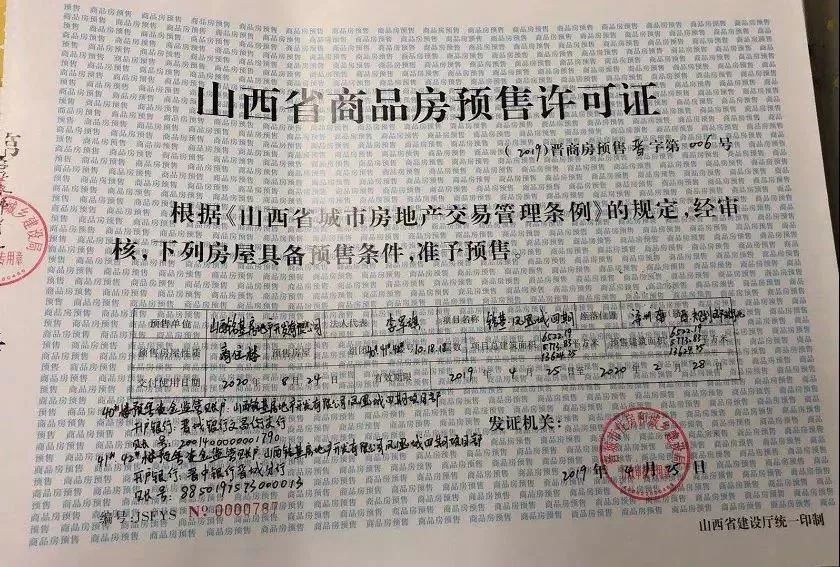 山西省商品房预售许可证
(2019)晋商房预售晋字第006号
根据《山西省城市房地产交易管理条例》的规定,经审
核,下列房屋具备预售条件,准予预售。
预售单位 山西铭基房地产开发有限公司 法人代表 项目名称 铭基·凤凰城四期 座落位置
预售房屋性质 商住楼 预售房屋 10.18.18 层数 项目总建筑面积 6522.19 平方米 预售建筑面积 6522.19 平方米
5773.83
13624.25 13624.25
交付使用日期 2020年8月24日 有效期限 2019年4月25日至2020年2月28日
40#楼预售资金监管账户:山西铭基房地产开发有限公司凤凰城四期项目部
开户银行:晋城银行文昌街支行
账号:
41# 42#楼预售资金监管账户:山西铭基房地产开发有限公司凤凰城四期项目部
开户银行:晋中银行晋城分行
账号:
发证机关:
2019年4月25日
编号:JSFYS No 0000787
山西省建设厅统一印制
专用章